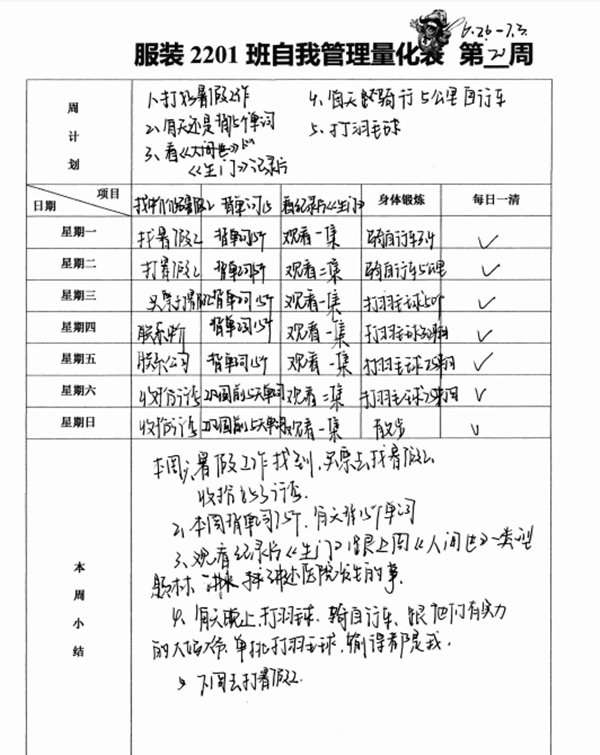 6.26-7.3
服装2201班自我管理量化表 第 周
周计划
1、打 暑假工作
4、每天骑行5公里自行车
2、每天还是背15个单词
5、打羽毛球
3、看《人间世》
《生门》记录片
日期 项目 背单词15 看纪录片《生门》 身体锻炼 每日一清
星期一 找暑假工 背单词15个 观看一集 骑自行车 ✓
星期二 打暑假工 背单词15个 观看二集 骑自行车5公里 ✓
星期三 买票 背单词15个 观看一集 打羽毛球 ✓
星期四 联系 背单词15个 观看一集 打羽毛球 ✓
星期五 联系公司 背单词15个 观看一集 打羽毛球 ✓
星期六 收拾行李 观看二集 打羽毛球 ✓
星期日 收拾行李 观看一集 散步 ✓
本周小结
本周,暑假工作找到,买票去找暑假工
收拾 行李.
2、本周背单词 ,每天背15个单词
3、观看纪录片《生门》跟上周《人间世》一类型
题材, 讲述医院发生的事.
4、每天晚上,打羽毛球、骑自行车、跟他们有实力
的 单挑打羽毛球,输得都是我.
5、下周去打暑假工.